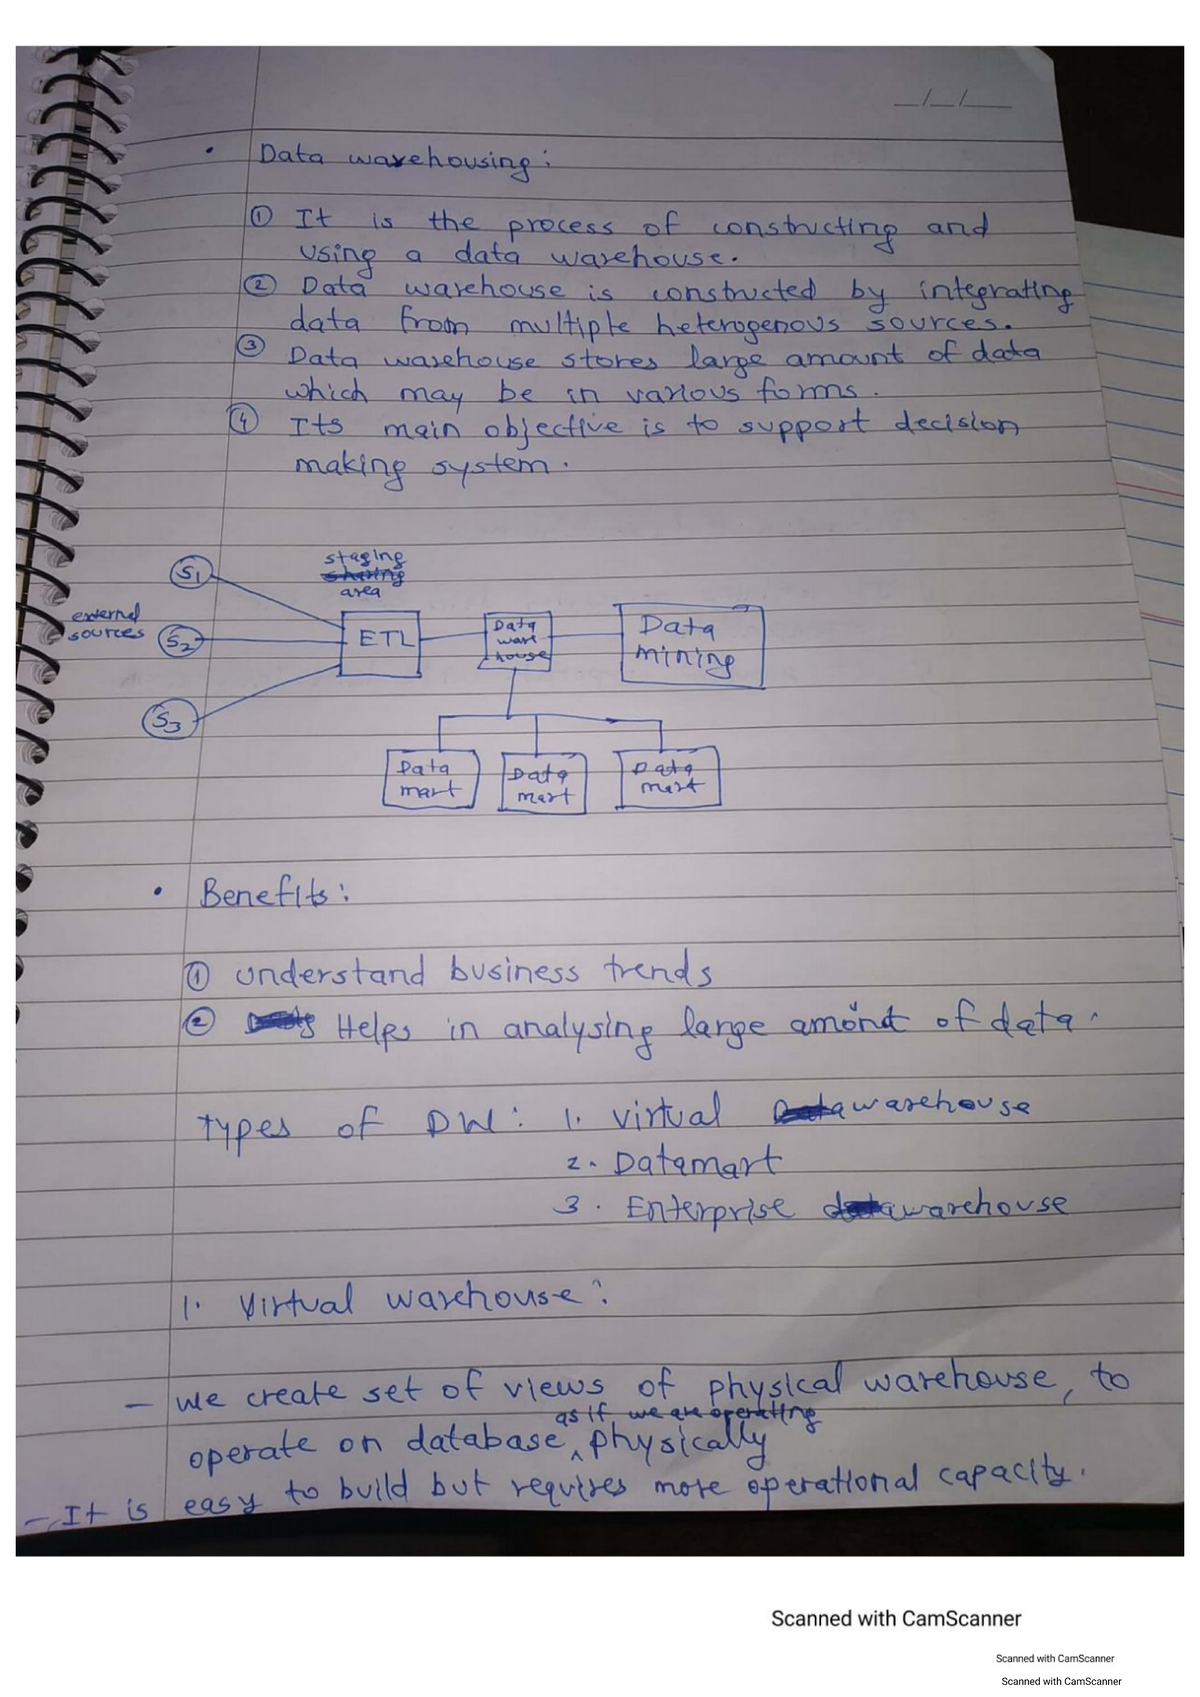 _/_/_
• Data warehousing:
① It is the process of constructing and
using a data warehouse.
② Data warehouse is constructed by integrating
data from multiple heterogenous sources.
③ Data warehouse stores large amount of data
which may be in various forms.
④ Its main objective is to support decision
making system.
staging
sharing
area
S1
external
sources
S2
S3
ETL
Data
ware
house
Data
mining
Data
mart
Data
mart
Data
mart
• Benefits:
① understand business trends
② Helps in analysing large amount of data.
Types of DW: 1. Virtual warehouse
2. Datamart
3. Enterprise warehouse
1. Virtual warehouse:
- we create set of views of physical warehouse, to
as if we are operating
operate on database ^ physically
- It is easy to build but requires more operational capacity.
Scanned with CamScanner
Scanned with CamScanner
Scanned with CamScanner